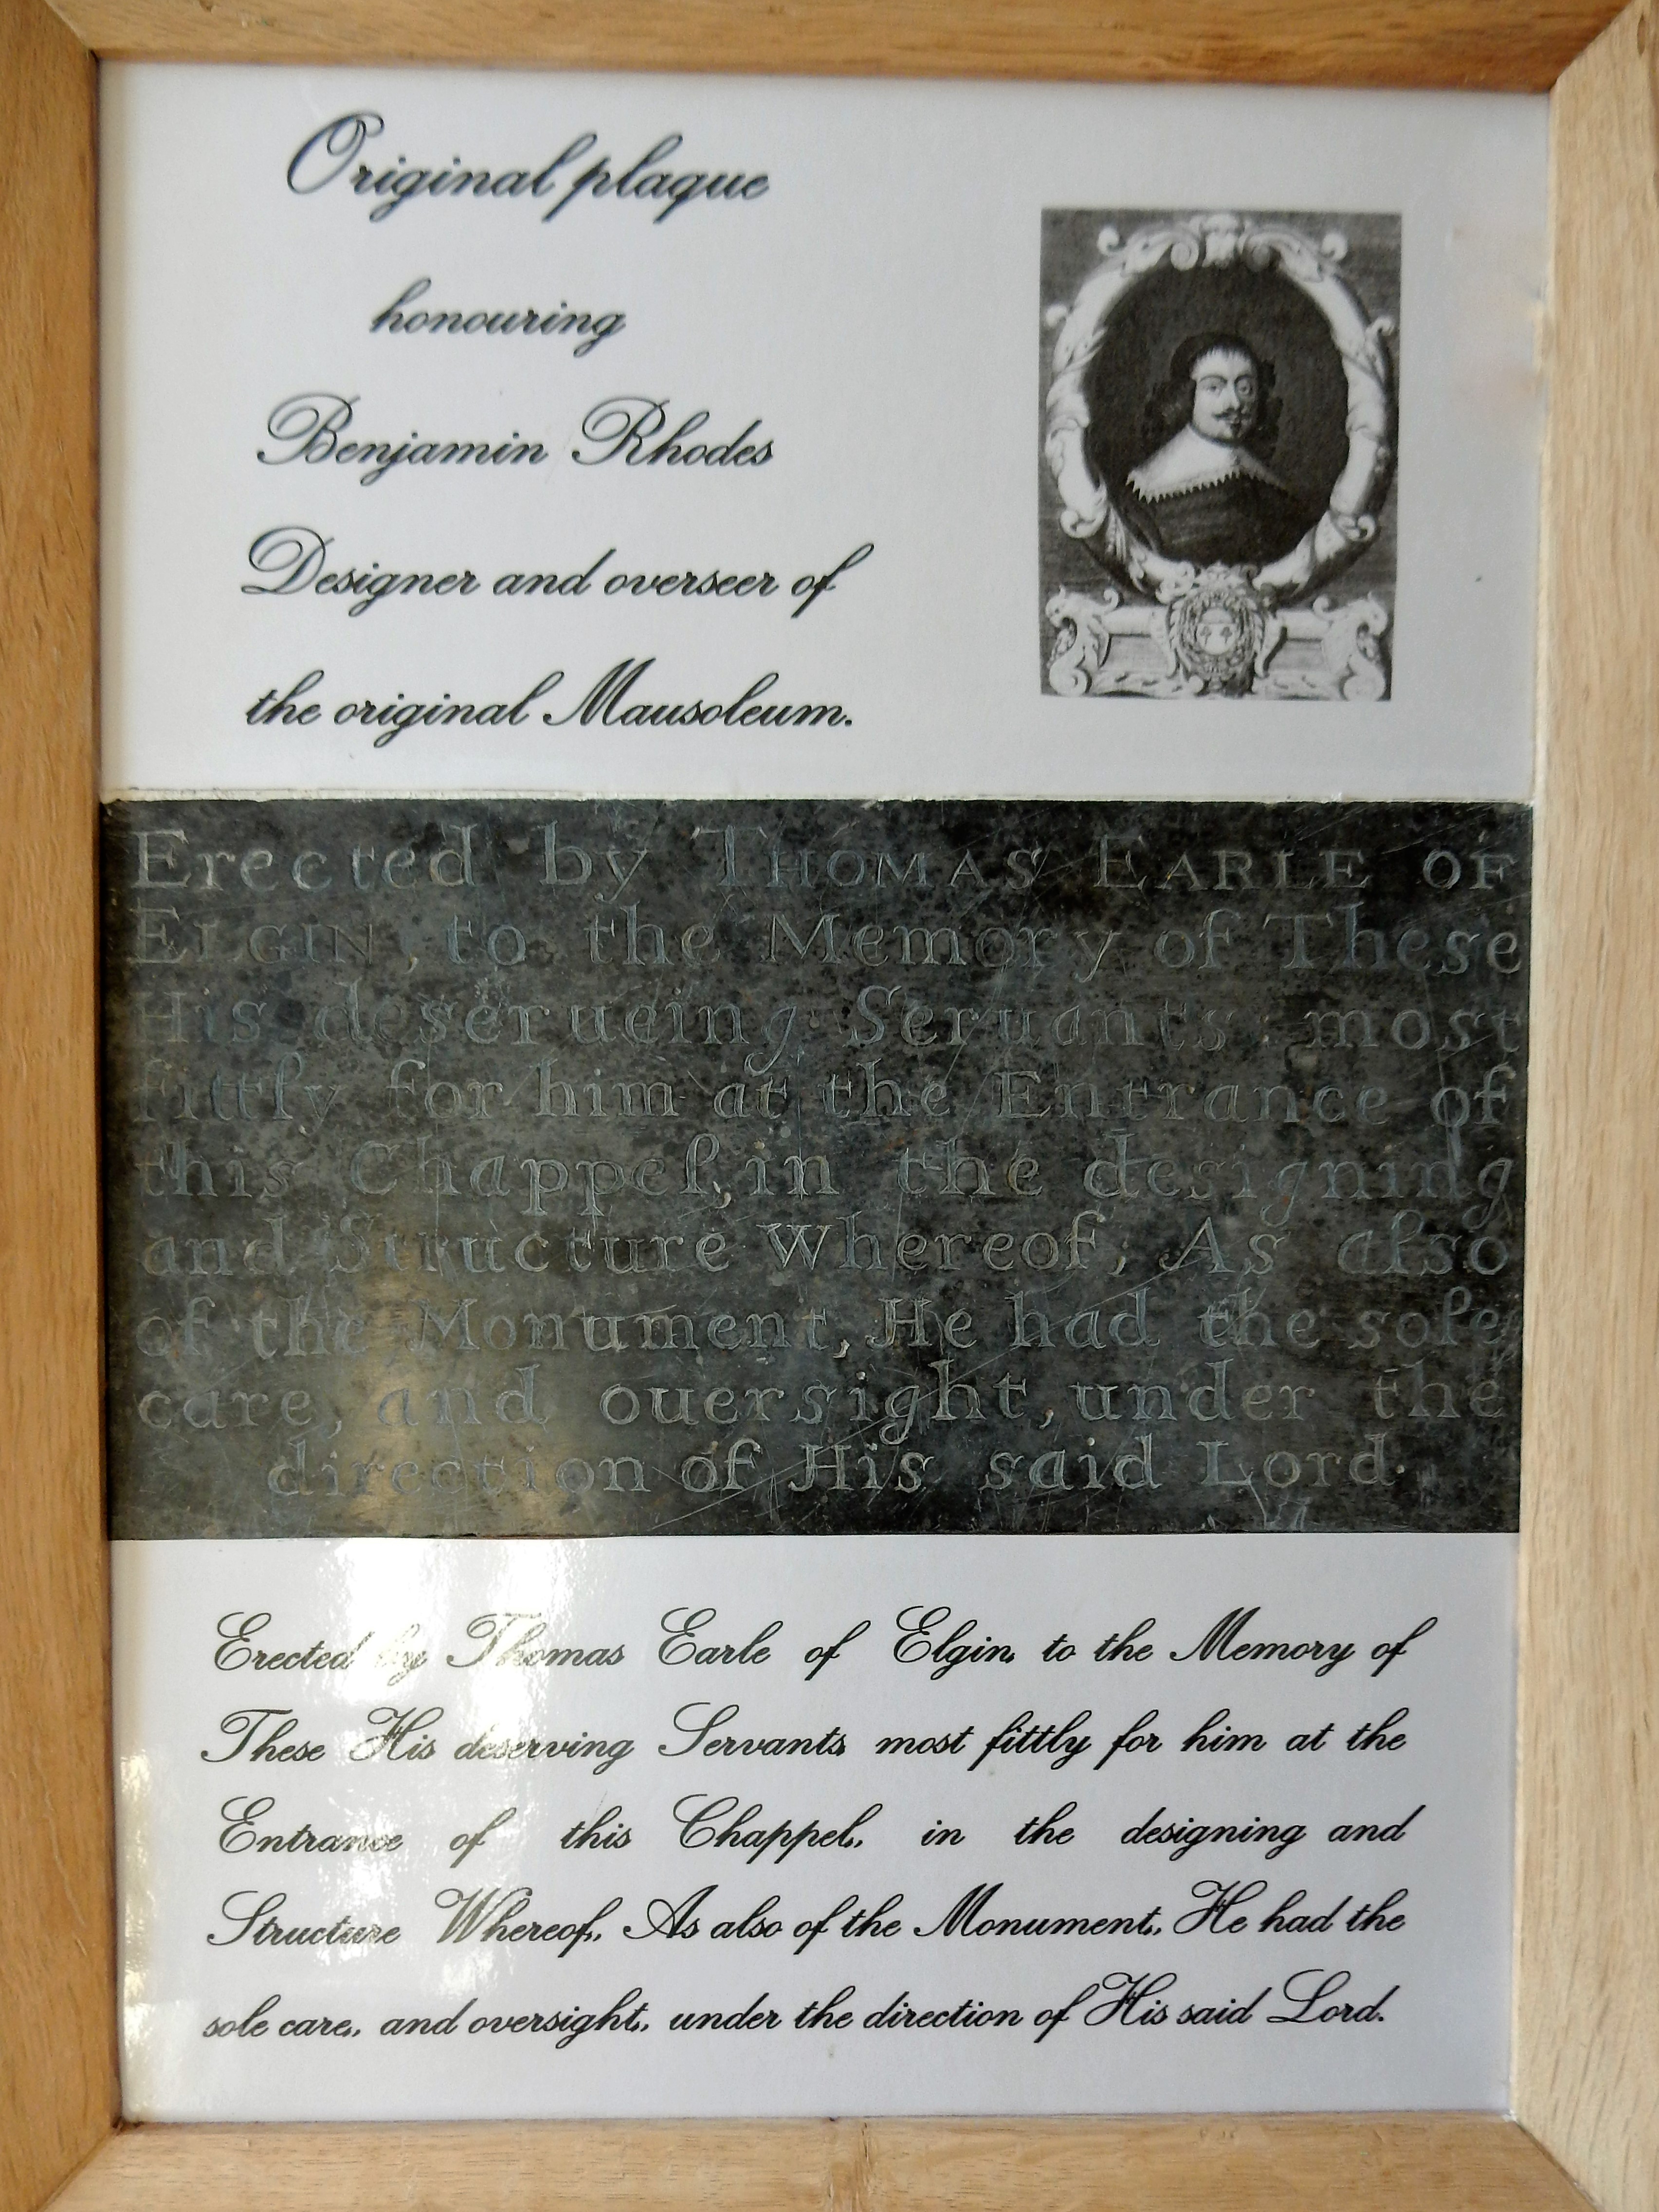 Original plaque
honouring
Benjamin Rhodes
Designer and overseer of
the original Mausoleum.
Erected by THOMAS EARLE OF
ELGIN, to the Memory of These
His deserueing Seruants, most
fittly for him at the Entrance of
this Chappel, in the designing
and Structure Whereof, As also
of the Monument, He had the sole
care, and ouersight, under the
direction of His said Lord.
Erected by Thomas Earle of Elgin, to the Memory of
These His deserving Servants, most fittly for him at the
Entrance of this Chappel, in the designing and
Structure Whereof, As also of the Monument, He had the
sole care, and oversight, under the direction of His said Lord.